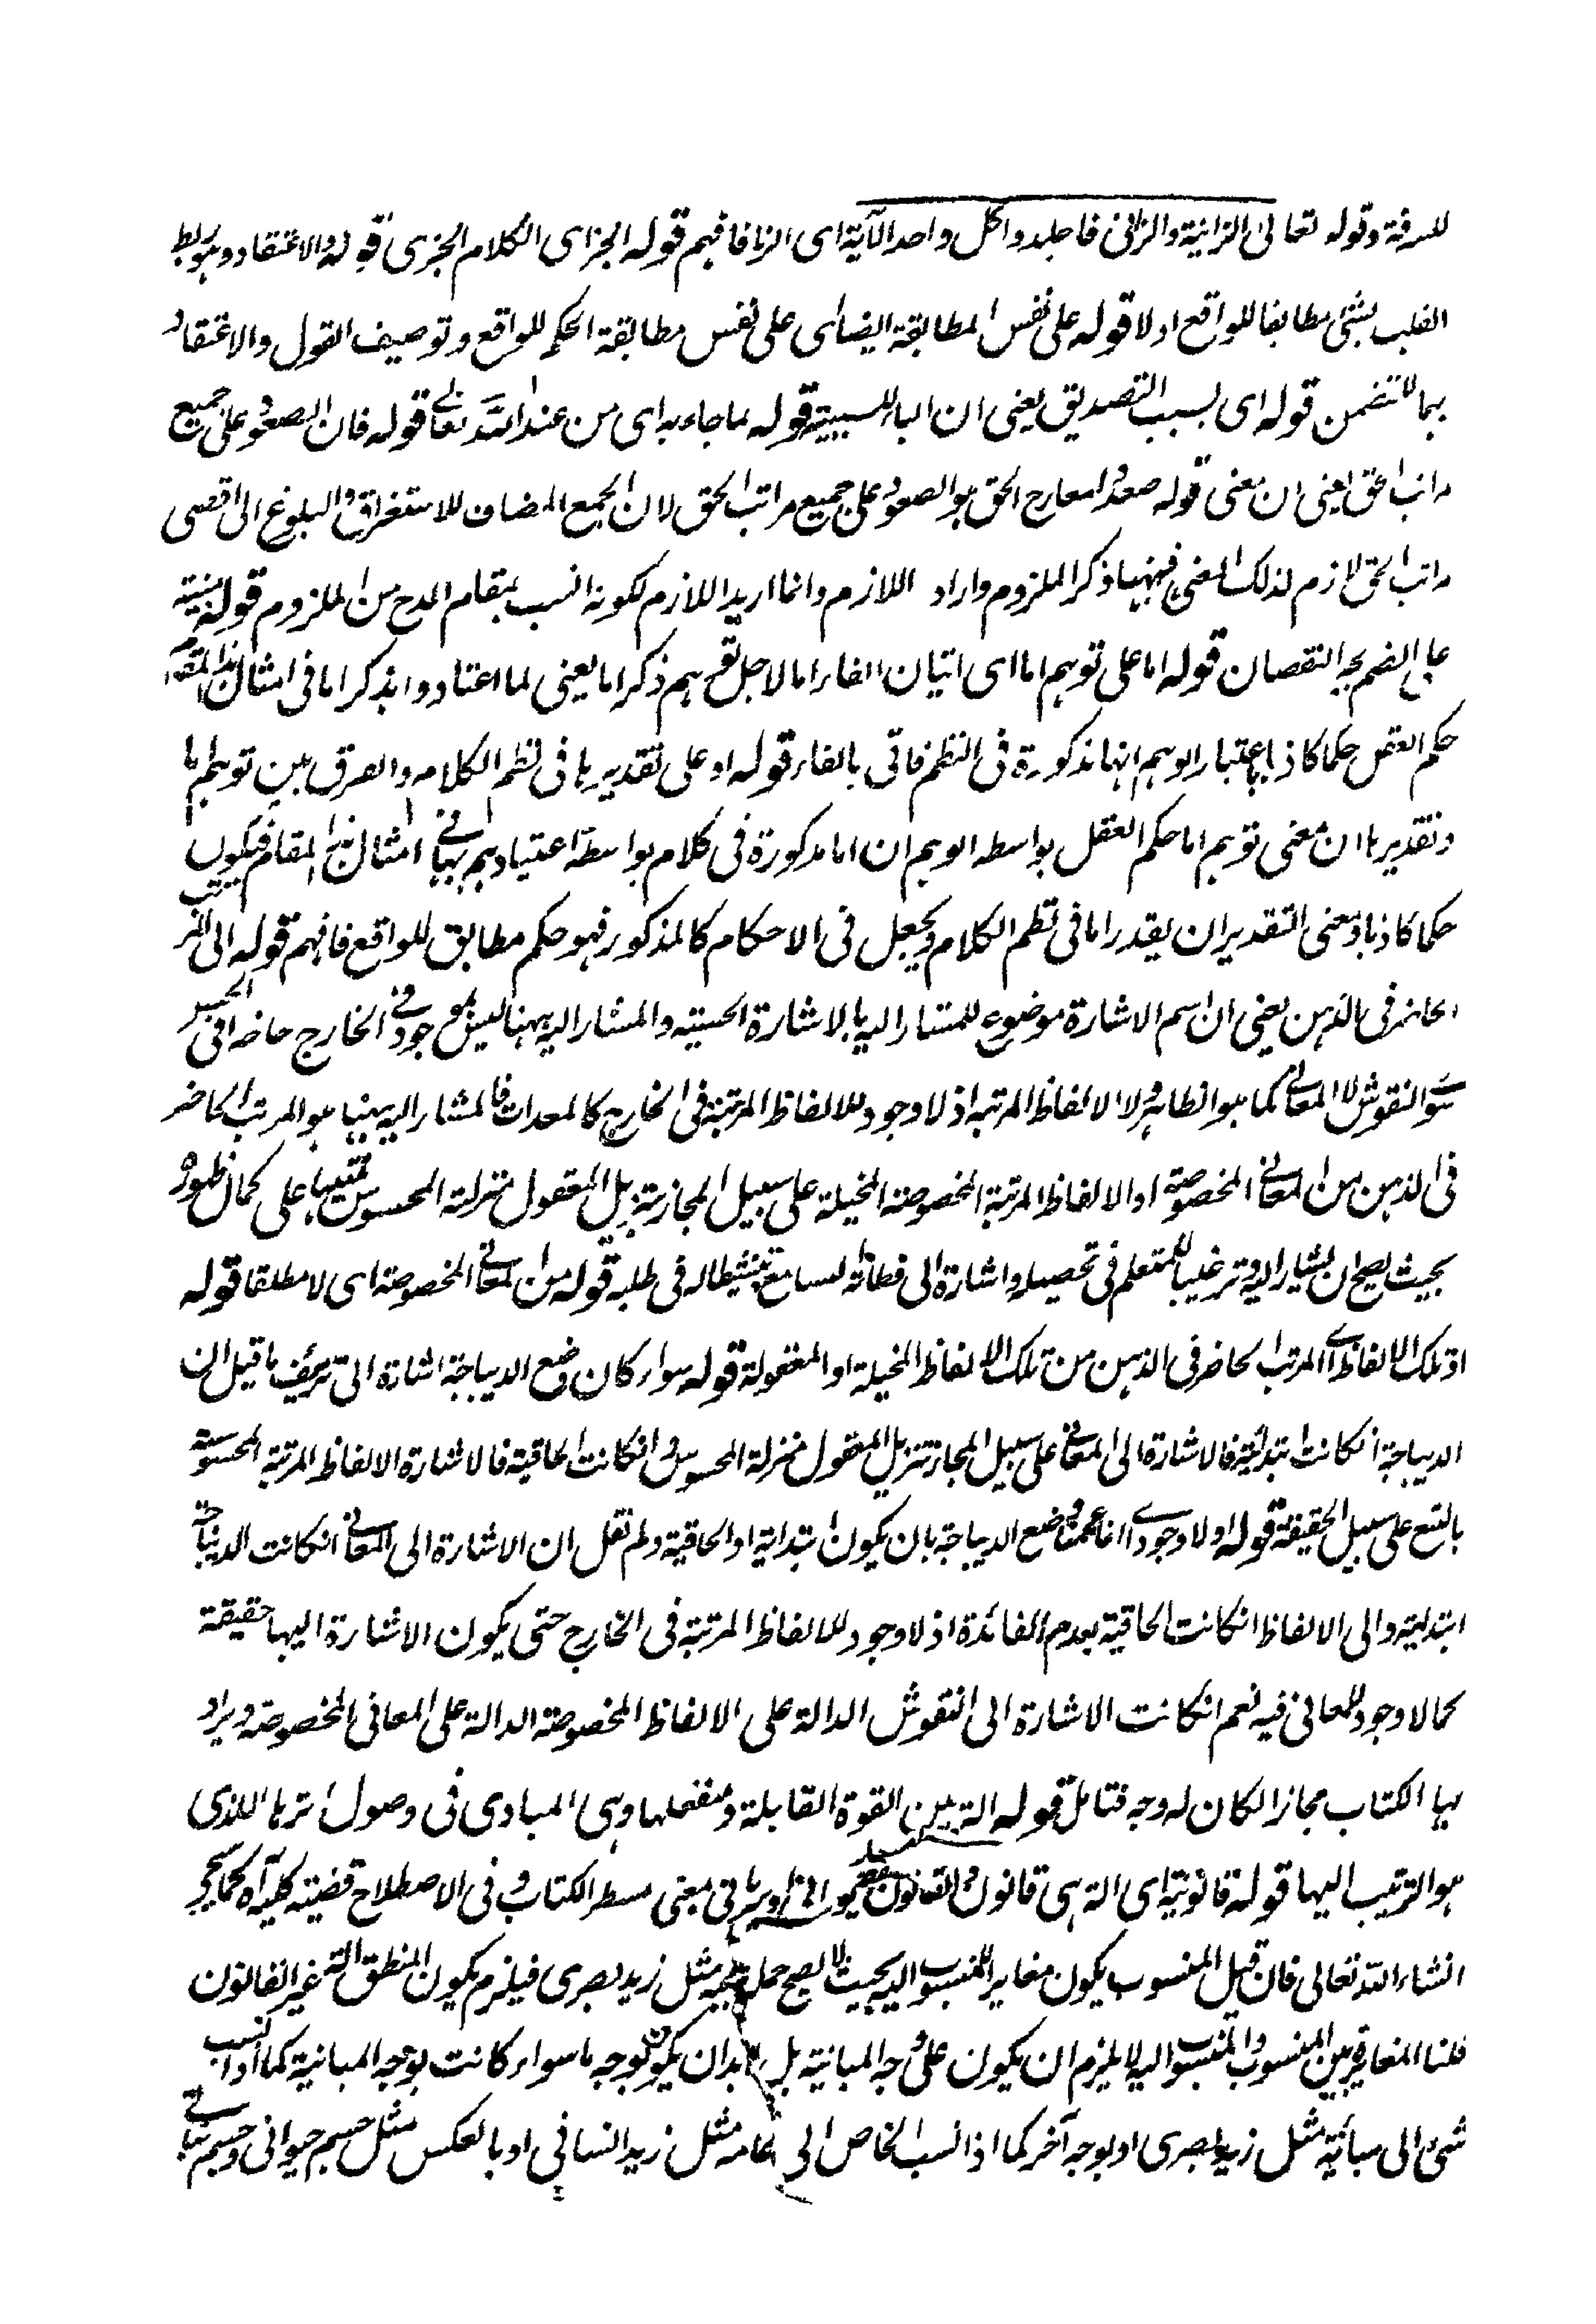 للسرقة وقوله تعالى الزانية والزانى فاجلدوا كل واحد الآية اى الزنا فافهم قوله الجزاى الكلام الجزى قوله والاعتقاد وهو ربط
القلب بشئ مطابقا للواقع اولا قوله على نفس المطابقة ايضا اى على نفس مطابقة الحكم للواقع وتوصيف القول والاعتقاد
بهما لا تتضمن قوله اى بسبب التصديق يعنى ان الباء للسببية قوله بما جاء به اى من عند الله تعالى قوله فان الصعود على جميع
مراتب الحق يعنى ان معنى قوله صعدوا معارج الحق هو الصعود على جميع مراتب الحق لان الجمع المضاف للاستغراق والبلوغ الى اقصى
مراتب الحق لازم لذلك المعنى فههنا ذكر الملزوم واراد اللازم وانما اريد اللازم لكونه انسب بمقام المدح من الملزوم قوله مبنية
على الضم بجبر النقصان قوله اما على توهم اما اى اتيان الفاء اما لاجل توهم ذكر اما يعنى لما اعتادوا بذكر اما فى امثال هذا المقام
حكم العقل حكما كاذبا باعتبار الوهم انها مذكورة فى النظم فاتى بالفاء قوله او على تقديرها فى نظم الكلام والفرق بين توهم اما
وتقديرها ان معنى توهم اما حكم العقل بواسطه الوهم ان اما مذكورة فى كلام بواسطة اعتيادهم بها فى امثال هذا المقام فيكون
حكما كاذبا ومعنى التقدير ان يقدر اما فى نظم الكلام ويجعل فى الاحكام كالمذكور فهو حكم مطابق للواقع فافهم قوله الى المرتب
الحاضر فى الذهن يعنى ان اسم الاشارة موضوع للمشار اليه بالاشارة الحسية والمشار اليه ههنا ليس بموجود فى الخارج حاضرا فى الحس
سوى النقوش لا المعانى كما هو الظاهر ولا الالفاظ المرتبة اذ لا وجود للالفاظ المرتبة فى الخارج كالمعدات فالمشار اليه ههنا هو المرتب الحاضر
فى الذهن من المعانى المخصوصة او الالفاظ المرتبة المخصوصة المخيلة على سبيل المجاز بتنزيل المعقول منزلة المحسوس تنبيها على كمال ظهوره
بحيث يصح ان يشار اليه وترغيبا للمتعلم فى تحصيله واشارة الى فطانة السامع وتنشيطا له فى طلبه قوله من المعانى المخصوصة اى لا مطلقا قوله
او تلك الالفاظ اى المرتب الحاضر فى الذهن من تلك الالفاظ المخيلة او المعقولة قوله سواء كان وضع الديباجة اشارة الى تزييف ما قيل ان
الديباجة انكانت ابتدائية فالاشارة الى المعانى على سبيل المجاز تنزيل المعقول منزلة المحسوس وانكانت الحاقية فالاشارة الالفاظ المرتبة المحسوسة
بالتبع على سبيل الحقيقة قوله اولا وجود اى انما عممنا وضع الديباجة بان يكون ابتدائية او الحاقية ولم نقل ان الاشارة الى المعانى انكانت الديباجة
ابتدائية والى الالفاظ انكانت الحاقية بعدم الفائدة اذ لا وجود للالفاظ المرتبة فى الخارج حتى يكون الاشارة اليها حقيقة
كما لا وجود للمعانى فيه نعم انكانت الاشارة الى النقوش الدالة على الالفاظ المخصوصة الدالة على المعانى المخصوصة ويراد
بها الكتاب مجازا لكان له وجه فتامل قوله الة بين القوة القابلة ومنفعلها وهى المبادى فى وصول اثرها اللذى
هو الترتيب اليها قوله قانونية اى الة هى قانون والقانون معنى مسطر الكتاب وفى الاصطلاح قضية كلية اه كما يجئ
انشاء الله تعالى فان قيل المنسوب يكون مغاير للمنسوب اليه بحيث لا يصح حمله مثل زيد بصرى فيلزم يكون المنطق الة غير القانون
قلنا المغايرة بين المنسوب والمنسوب اليه لا يلزم ان يكون على وجه المباينة بل لابد ان يكون بوجه ما سواء كانت بوجه المباينة كما اذا نسب
شئ الى مباينه مثل زيد بصرى او بوجه آخر كما اذا نسب الخاص الى عامه مثل زيد انسانى او بالعكس مثل جسم حيوانى وجسم نباتى